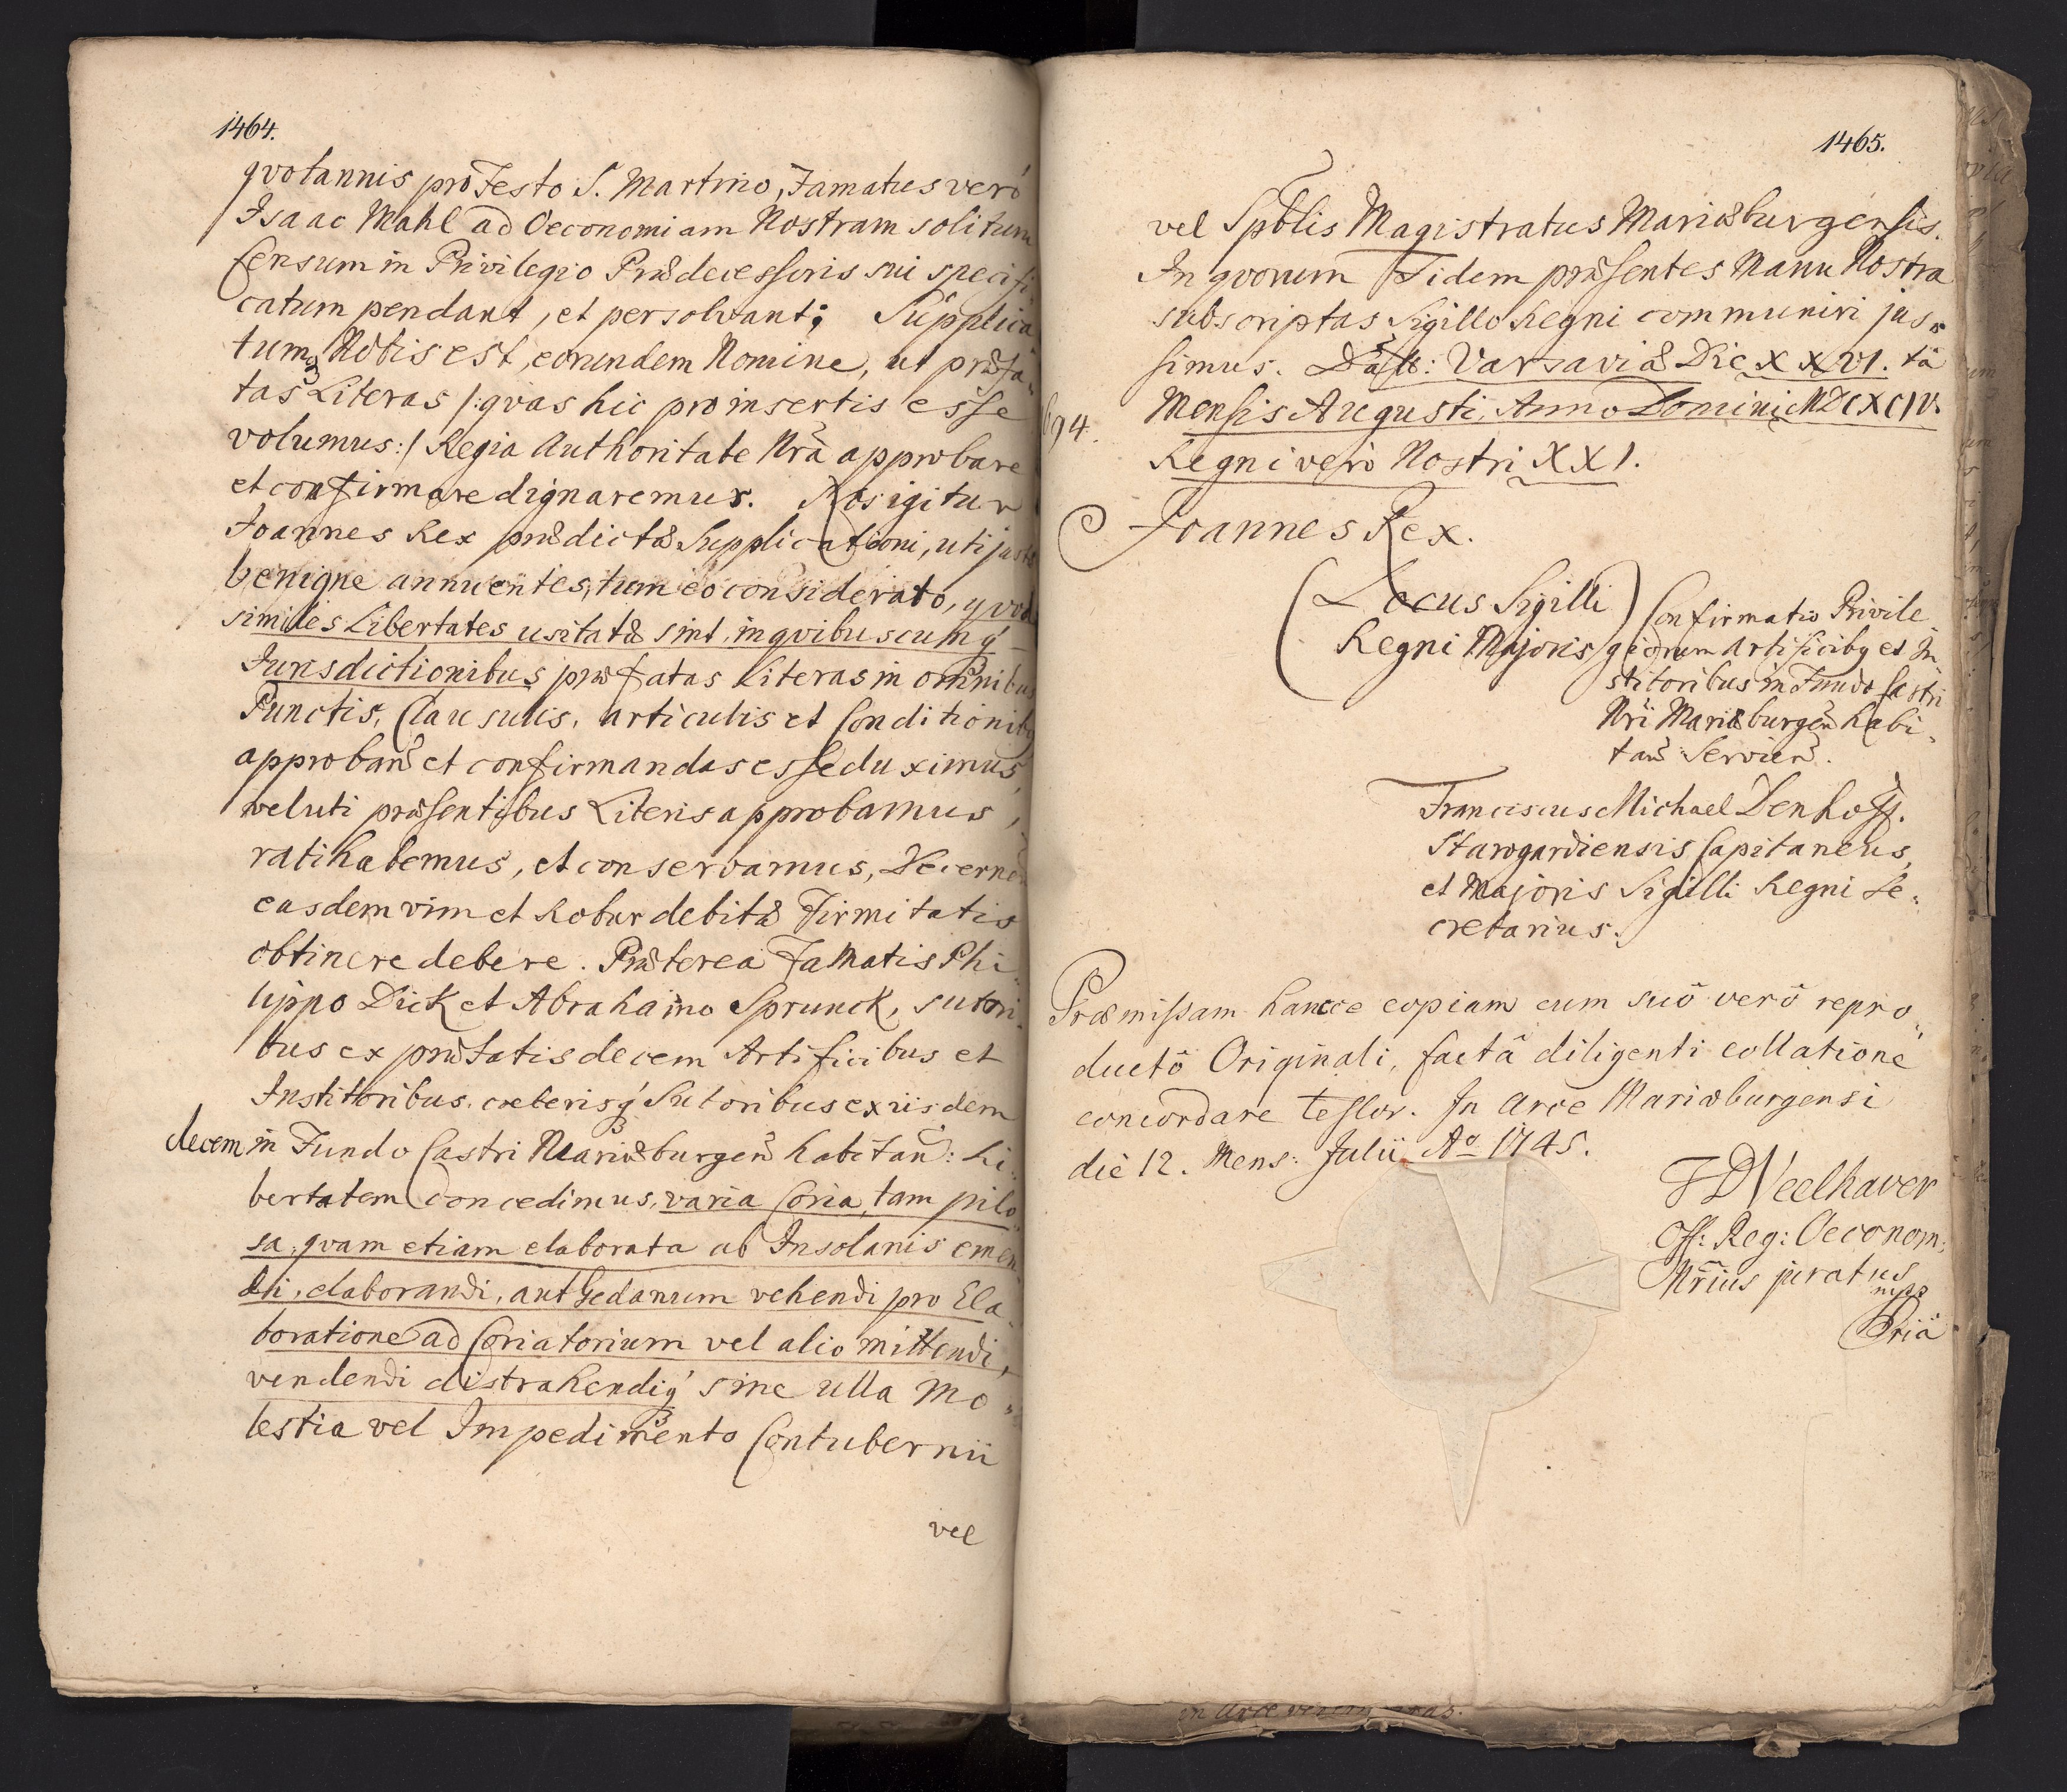 1464.
qvotannis pro Festo S. Martino, Famatus verò
Isaac Mahl ad Oeconomiam Nostram solitum
Censum in Privilegio Prædecessoris sui specifi
catum pendant, et persolvant; Supplica
tumq Nobis est, eorundem Nomine, ut præfa„
tas Literas /: qvas hic pro insertis esse
volumus :/ Regia Authoritate Nrã approbare
et confirmare dignaremur. Nos igitur
Joannes Rex prædictæ Supplicationi, uti justæ
benigne annuentes, tum eo considerato, qvod
similes Libertates usitatæ sint, in qvibuscumq
Jurisdictionibus præfatas Literas in omnibus
Punctis, Clausulis, articulis et Conditionibq
approban̄ et confirmandas esse duximus,
veluti præsentibus Literis approbamus,
ratihabemus, et conservamus, Decernen
easdem vim et Robur debitæ Firmitatis
obtinere debere. Præterea Famatis Phi
lippo Dick et Abrahamo Sprunck, sutori
bus ex præfatis decem Artificibus et
Institoribus, ceterisq Sutoribus ex iisdem
decem in Fundo Castri Mariæburgen̄ habitan̄: Li
bertatem concedimus, varia Coria, tam pilo
sa, qvam etiam elaborata ab Insolanis emen
di, elaborandi, aut Gedanum vehendi pro Ela
boratione ad Coriatorium vel alio mittendi,
vendendi distrahendiq sine ulla Mo„
lestia vel Impedimento Contubernii
vel
1465.
vel Spblis Magistratus Mariæburgensis.
In qvorum Fidem præsentes Manu Nostra
subscriptas Sigillo Regni communiri jus„
simus. Datt: Varsaviæ Die XXVI. tâ
694. Mensis Augusti, Anno Domini MDCXCIV.
Regni verò Nostri XXI.
Joannes Rex.
(Locus Sigilli)
Regni Majoris
Confirmatio Privile
giorum Artificibq et In
stitoribus in Fundo Castri
Nr̃i Mariæburgen̄ habi„
tan̄ Servien̄.
Franciscus Michael Denhoff.
Starogardiensis Capitaneus,
et Majoris Sigilli Regni Se„
cretarius.
Præmissam hancce copiam cum suô verô repro„
ductô Originali, factâ diligenti collatione
concordare testor. In Arce Mariæburgensi
die 12. Mens: Julii Aº 1745.
Off: Reg: Oeconom:
Nr̃ius juratus
mpp